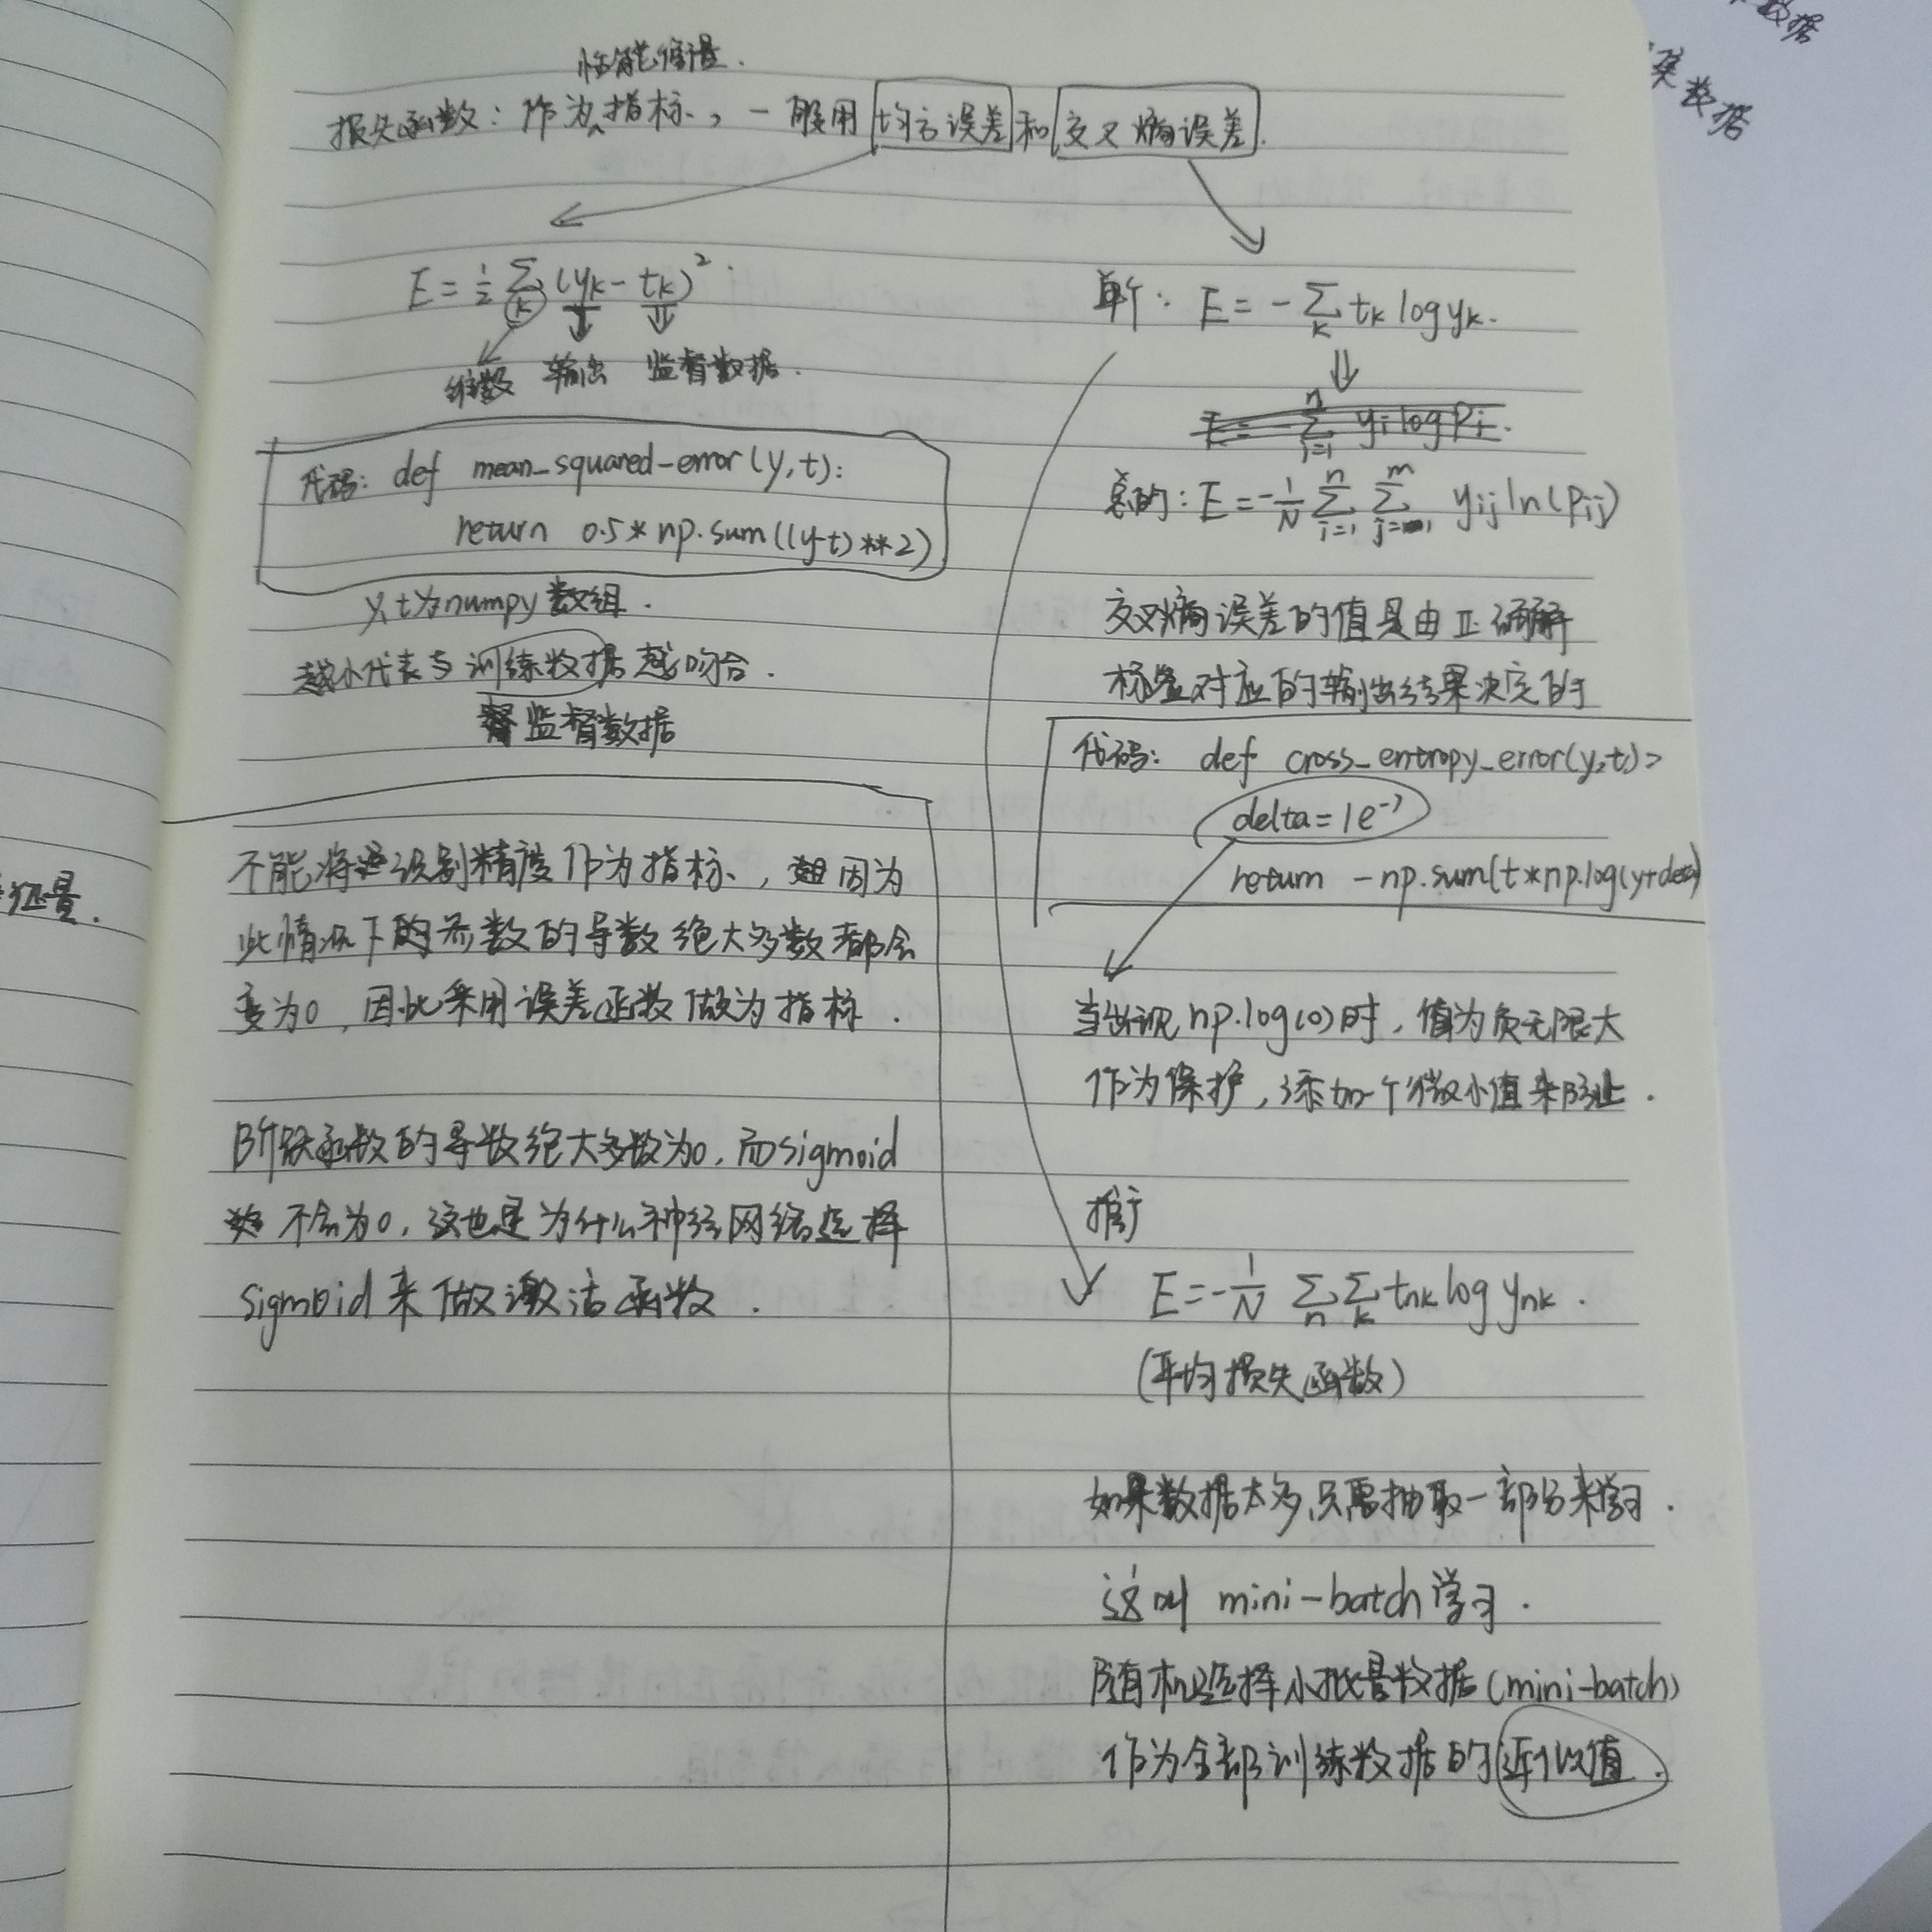 性能衡量.
损失函数：作为^指标，一般用 均方误差 和 交叉熵误差.
E = ½ Σ_k (yk - tk)².
维数 输出 监督数据.
代码: def mean_squared_error(y,t):
return 0.5*np.sum((y-t)**2)
y,t为numpy数组.
越小代表与训练数据越吻合.
监督数据
不能将识别精度作为指标, 因为
此情况下的参数的导数绝大多数都会
变为0, 因此采用误差函数做为指标.
阶跃函数的导数绝大多数为0, 而sigmoid
不会为0, 这也是为什么神经网络选择
sigmoid来做激活函数.
单个: E = - Σ_k tk log yk.
E = - Σ_{i=1}^n yi log Pi.
总的: E = -1/N Σ_{i=1}^n Σ_{j=1}^m yij ln(Pij)
交叉熵误差的值是由正确解
标签对应的输出结果决定的
代码: def cross_entropy_error(y,t):
delta = 1e⁻⁷
return -np.sum(t*np.log(y+delta)
当出现np.log(0)时, 值为负无限大
作为保护, 添加一个微小值来防止.
推广
E = -1/N Σ_n Σ_k tnk log ynk.
(平均损失函数)
如果数据太多,只需抽取一部分来学习.
这叫 mini-batch学习.
随机选择小批量数据(mini-batch)
作为全部训练数据的近似值.
数据
集数据